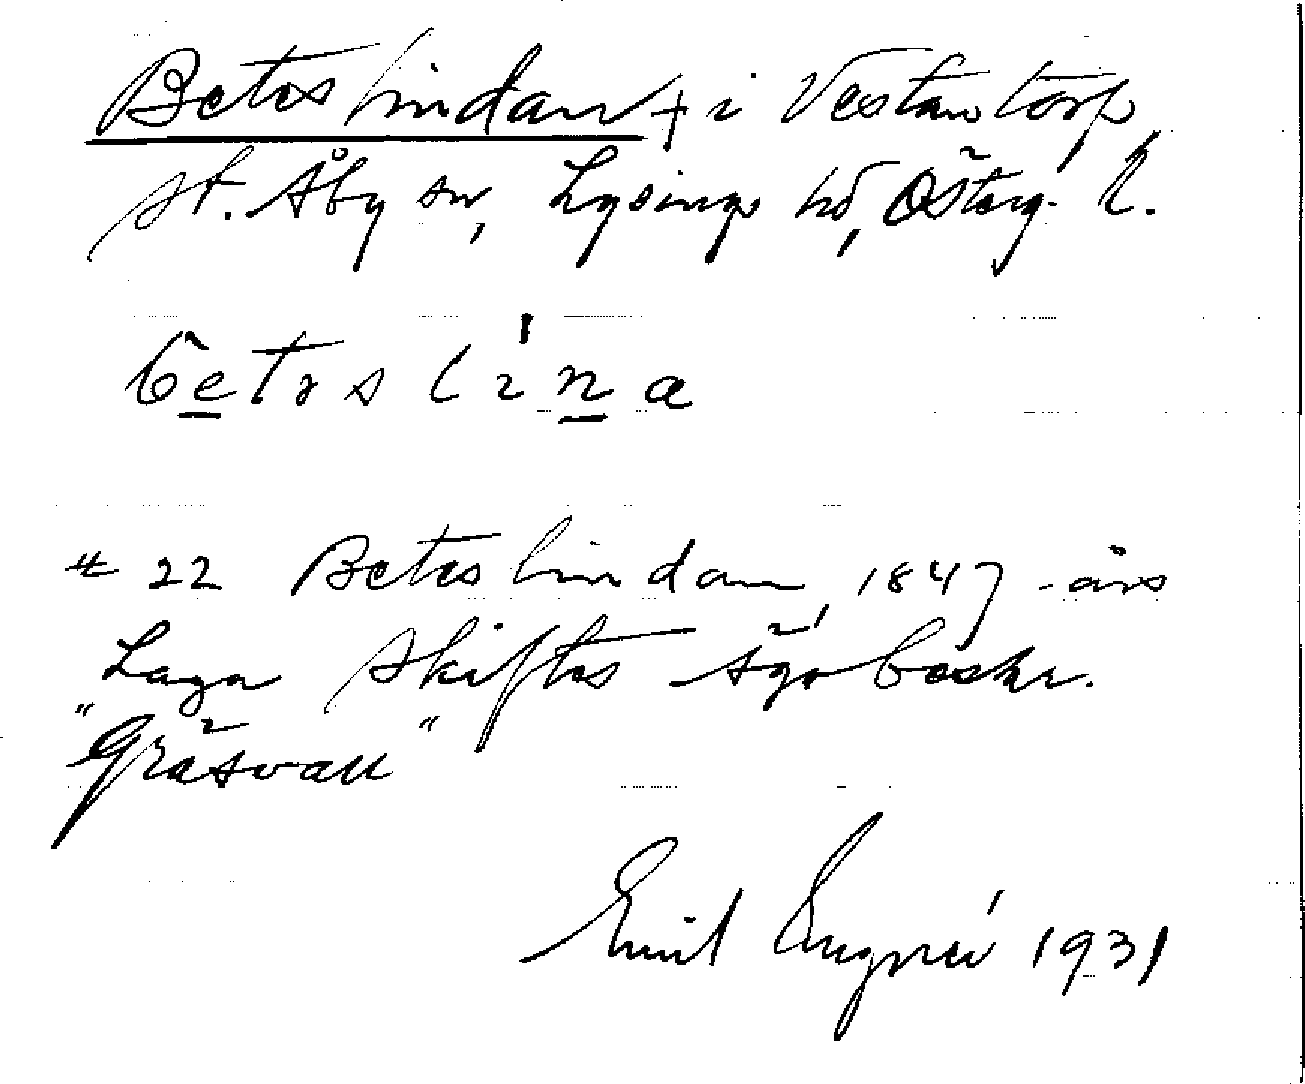 Beteslindan + i Vestantorp,
St. Åby sn, Lysings hd, Österg. l.
betɜslína
# 22 Beteslindan, 1847-års
Laga Skiftes Ägobeskr.
"Gräsvall"
Emil 1931